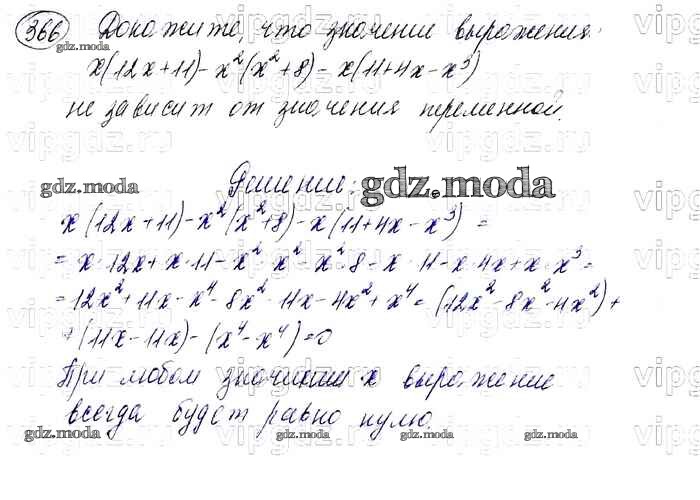 366 Докажите, что значение выражения:
gdz.moda
x(12x+11)-x²(x²+8)-x(11+4x-x³)
не зависит от значения переменной.
gdz.moda
Решение: gdz.moda
x(12x+11)-x²(x²+8)-x(11+4x-x³)=
=x·12x+x·11-x²·x²-x²·8-x·11-x·4x+x·x³=
=12x²+11x-x⁴-8x²-11x-4x²+x⁴=(12x²-8x²-4x²)+
+(11x-11x)-(x⁴-x⁴)=0
При любом значении x выражение
всегда будет равно нулю.
gdz.moda gdz.moda gdz.moda gdz.moda